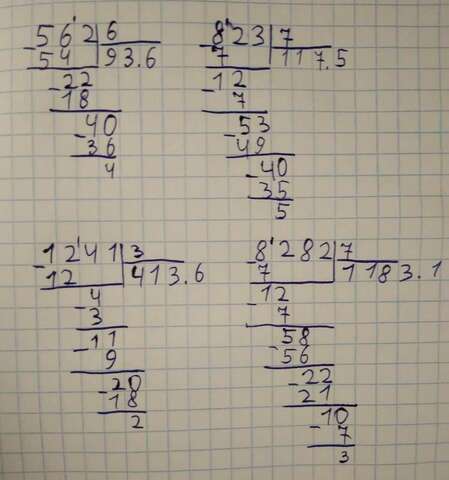 562 6
54 93.6
22
18
40
36
4
823 7
7 117.5
12
7
53
49
40
35
5
1241 3
12 413.6
4
3
11
9
20
18
2
8282 7
7 1183.1
12
7
58
56
22
21
10
7
3